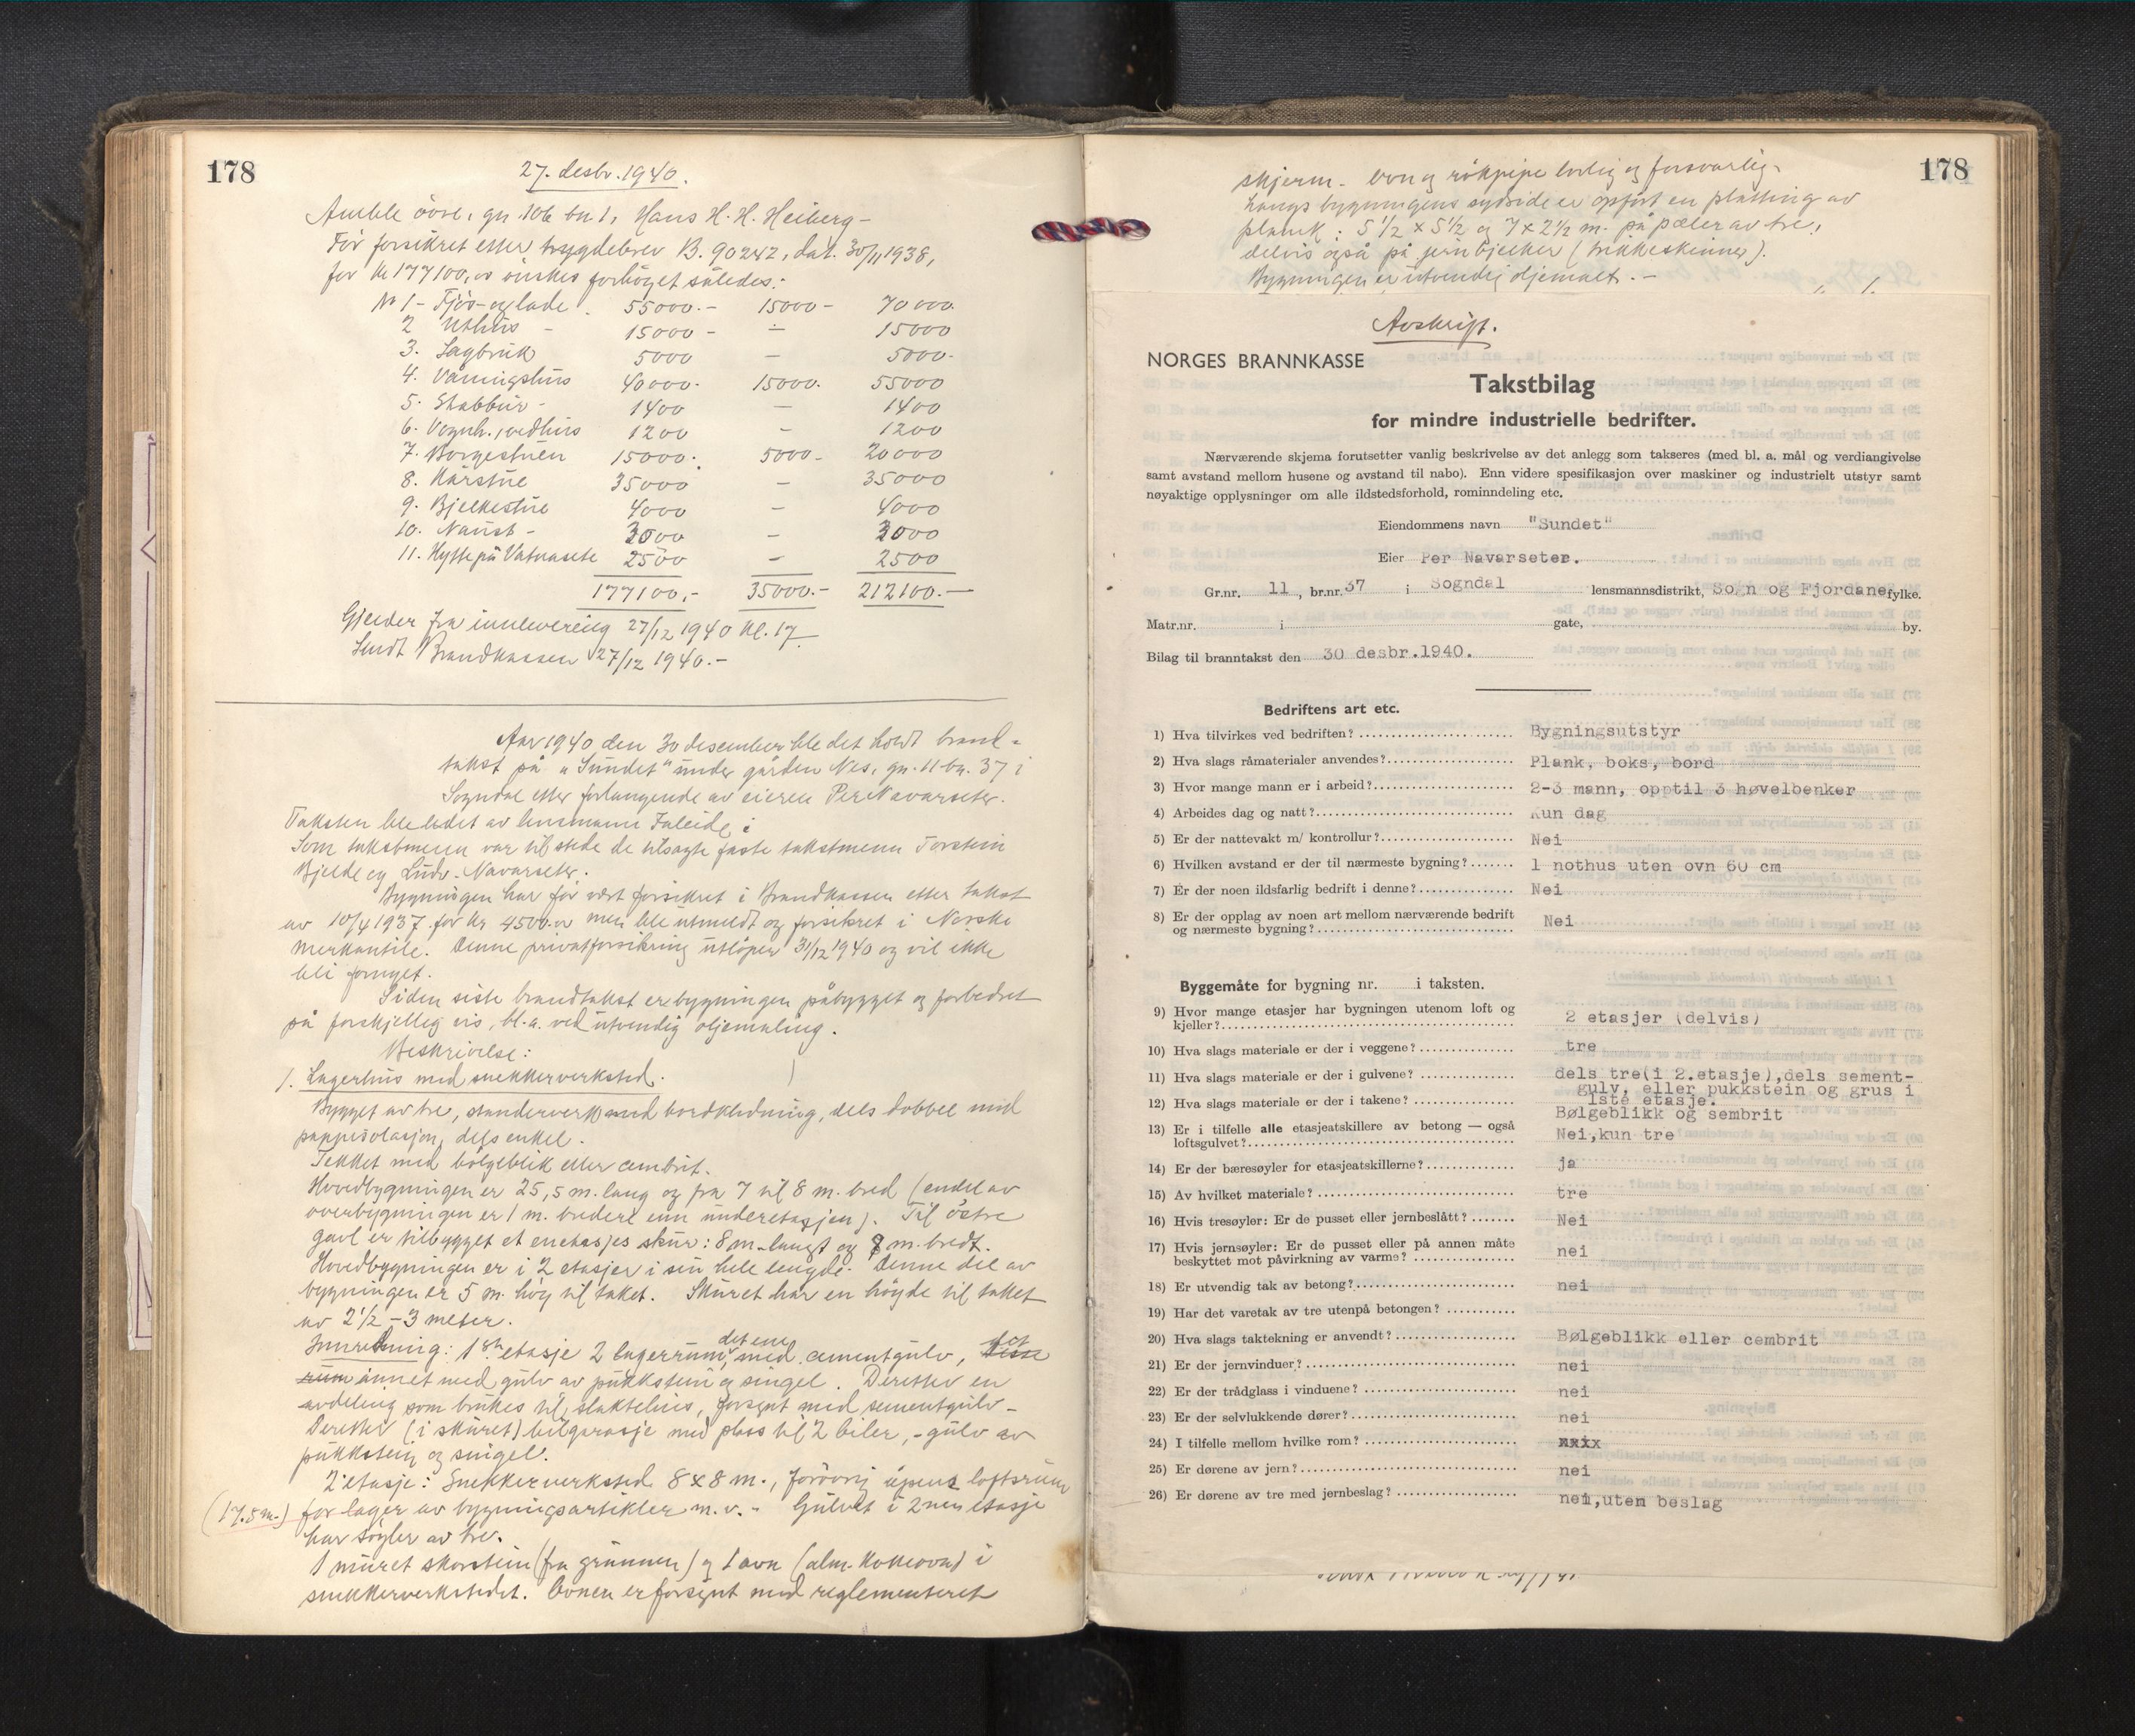 178
27. desbr. 1940.
Amble övre, gn. 106 bn 1, Hans H. H. Heiberg -
Før forsikret etter trygdebrev B. 90242, dat. 30/11 1938,
for kr 177100,00 önskes forhöyet således:
№ 1 - Fjös- og lade. 55000.- 15000- 70000.
2 Uthus - 15000- - 15000
3. Sagbruk 5000 - 5000.
4. Våningshus 40000. 15000. 55000
5. Stabbur - 1400 - 1400
6. Vognh., vedhus 1200 - 1200
7. Borgestuen 15000. 5000- 20000
8. Kårstue 35000 - 35000
9. Bjelkestue 4000 - 4000
10. Naust - 3000 - 3000
11. Hytte på Vatnasete 2500 - 2500
177100,- 35000.- 212100.-
Gjelder fra innlevering 27/12 1940 kl. 17
Sendt Brandkassen 27/12 1940.-
Aar 1940 den 30 desember ble det holdt brand-
takst på "Sundet" under gården Nes, gn. 11 bn. 37 i
Sogndal etter forlangende av eieren Per Navarseter.
Taksten ble ledet av lensmann Faleide,
Som takstmenn var til stede de tilsagte faste takstmenn Torstein
Bjelde og Ludv. Navarseter.
Bygningen har før vært forsikret i Brandkassen etter takst
av 10/4 1937 for kr 4500.00 men ble utmeldt og forsikret i Norske
Merkantile. Denne privatforsikring utlöper 31/12 1940 og vil ikke
bli fornyet.
Siden siste brandtakst er bygningen påbygget og forbedret
på forskjellig vis, bl.a. ved utvendig oljemaling.
Beskrivelse:
1. Lagerhus med snekkerverksted.
Bygget av tre, standerverk med bordkledning, dels dobbel med
pappisolasjon, dels enkel.
Tekket med bölgeblik eller cembrit.
Hovedbygningen er 25,5 m. lang og fra 7 til 8 m. bred (endel av
overbygningen er 1 m. bredere enn underetasjen). Til östre
gavl er tilbygget et enetasjes skur: 8 m. langt og 8 m. bredt.
Hovedbygningen er i 2 etasjer i sin hele lengde. Denne del av
bygningen er 5 m. höy til taket. Skuret har en höyde til taket
av 2 1/2 - 3 meter.
Innredning: 1ste etasje 2 lagerrum, det ene med cementgulv, det
rum annet med gulv av pukkstein og singel. Deretter en
avdeling som brukes til slaktehus, forsynt med sementgulv -
Deretter (i skuret) bilgarasje med plass til 2 biler, - gulv av
pukkstein og singel.
2 etasje: Snekkerverksted 8 x 8 m., forövrig åpens loftsrum
(17.5 m.) for lager av bygningsartikler m. v. - Gulvet i 2nen etasje
har söyler av tre.
1 muret skorstein (fra grunnen) og 1 ovn (alm. kokeovn) i
snekkerverkstedet. Ovnen er forsynt med reglementeret
178
skjerm - ovn og rökpipe lovlig og forsvarlig.
Langs bygningens sydside er opfört en platting av
plank: 5 1/2 x 5 1/2 og 7 x 2 1/2 m. på pæler av tre,
delvis også på jernbjelker (trikkeskinner).
Bygningen er utvendig oljemalt. -
Avskrift.
NORGES BRANNKASSE
Takstbilag
for mindre industrielle bedrifter.
Nærværende skjema forutsetter vanlig beskrivelse av det anlegg som takseres (med bl. a. mål og verdiangivelse
samt avstand mellom husene og avstand til nabo). Enn videre spesifikasjon over maskiner og industrielt utstyr samt
nøyaktige opplysninger om alle ildstedsforhold, rominndeling etc.
Eiendommens navn "Sundet"
Eier Per Navarseter.
Gr.nr. 11, br.nr. 37 i Sogndal lensmannsdistrikt, Sogn og Fjordane fylke.
Matr.nr. i gate, by.
Bilag til branntakst den 30 desbr.1940.
Bedriftens art etc.
1) Hva tilvirkes ved bedriften? Bygningsutstyr
2) Hva slags råmaterialer anvendes? Plank, boks, bord
3) Hvor mange mann er i arbeid? 2-3 mann, opptil 3 høvelbenker
4) Arbeides dag og natt? Kun dag
5) Er der nattevakt m/ kontrollur? Nei
6) Hvilken avstand er der til nærmeste bygning? 1 nothus uten ovn 60 cm
7) Er der noen ildsfarlig bedrift i denne? Nei
8) Er der opplag av noen art mellom nærværende bedrift
og nærmeste bygning? Nei
Byggemåte for bygning nr. i taksten.
9) Hvor mange etasjer har bygningen utenom loft og
kjeller? 2 etasjer (delvis)
10) Hva slags materiale er der i veggene? tre
11) Hva slags materiale er der i gulvene? dels tre(i 2.etasje),dels sement-
gulv, eller pukkstein og grus i
1ste etasje.
12) Hva slags materiale er der i takene? Bølgeblikk og sembrit
13) Er i tilfelle alle etasjeatskillere av betong — også
loftsgulvet? Nei,kun tre
14) Er der bæresøyler for etasjeatskillerne? ja
15) Av hvilket materiale? tre
16) Hvis tresøyler: Er de pusset eller jernbeslått? Nei
17) Hvis jernsøyler: Er de pusset eller på annen måte
beskyttet mot påvirkning av varme? nei
18) Er utvendig tak av betong? nei
19) Har det varetak av tre utenpå betongen?
20) Hva slags taktekning er anvendt? Bølgeblikk eller cembrit
21) Er der jernvinduer? nei
22) Er der trådglass i vinduene? nei
23) Er der selvlukkende dører? nei
24) I tilfelle mellom hvilke rom? xxix
25) Er dørene av jern? nei
26) Er dørene av tre med jernbeslag? nei,uten beslag